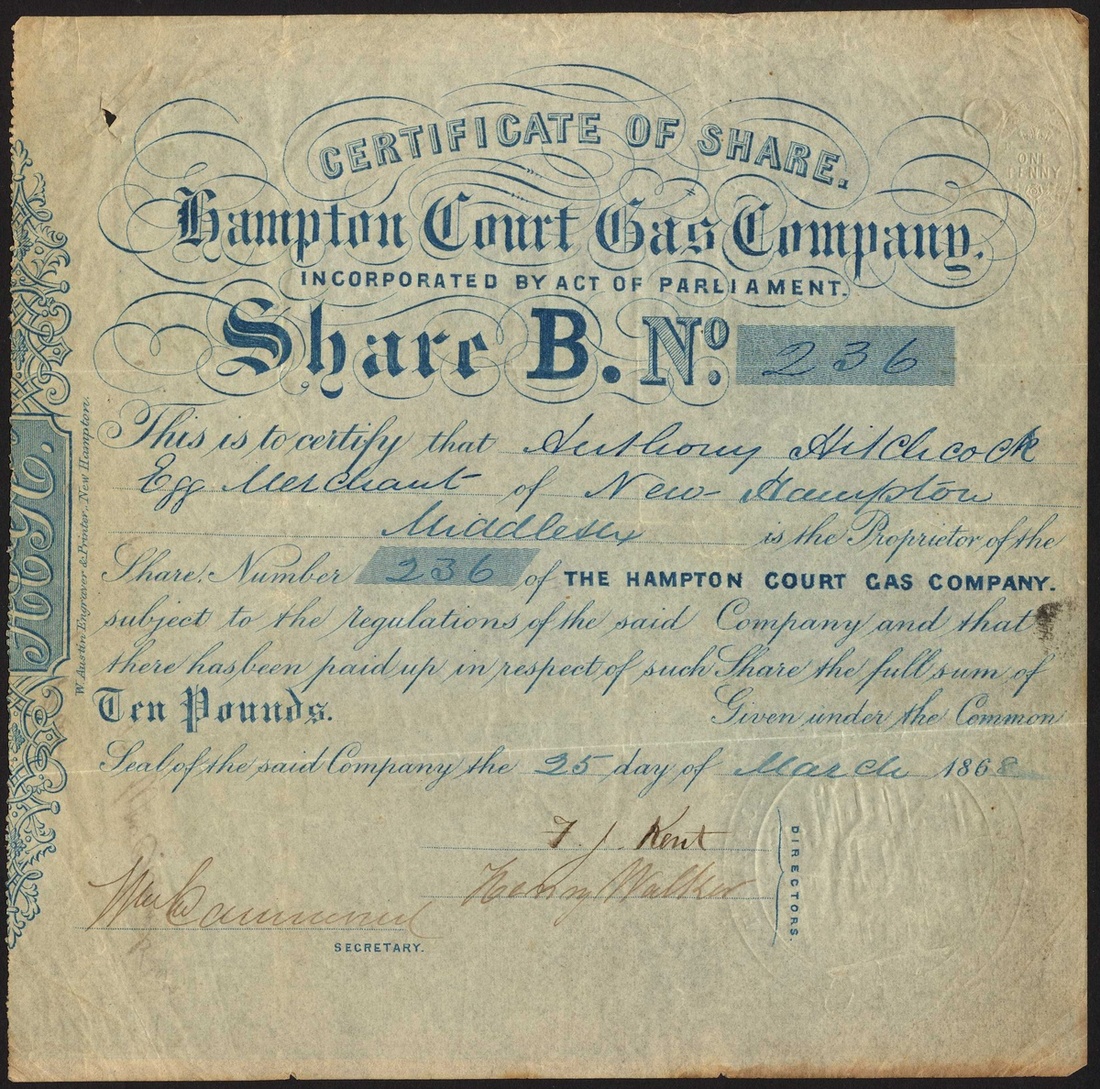 CERTIFICATE OF SHARE.
Hampton Court Gas Company.
INCORPORATED BY ACT OF PARLIAMENT.
Share B. No. 236
This is to certify that Anthony Hitchcock
Egg Merchant of New Hampton
Middlesex is the Proprietor of the
Share, Number 236 of THE HAMPTON COURT GAS COMPANY.
subject to the regulations of the said Company and that
there has been paid up in respect of such Share the full sum of
Ten Pounds. Given under the Common
Seal of the said Company the 25 day of March 1868
F. J. Kent
Henry Walker
DIRECTORS.
Wm
SECRETARY.
W. Austin Engraver & Printer, New Hampton.
ONE
PENNY